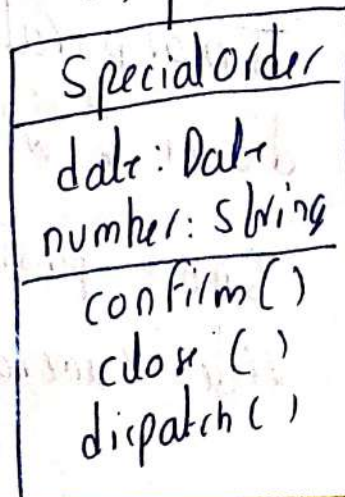 SpecialOrder
date: Date
number: String
confirm()
close ()
dispatch()